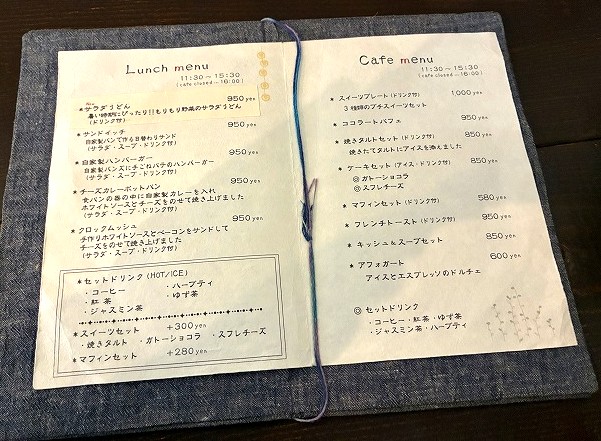 Lunch menu
11:30～15:30
(cafe closed ～16:00)
New
＊サラダうどん 950yen
暑い時期にぴったり!!もりもり野菜のサラダうどん
(ドリンク付)
＊サンドイッチ 950yen
自家製パンで作る日替わりサンド
(サラダ・スープ・ドリンク付)
＊自家製ハンバーガー 950yen
自家製バンズに手ごねパテのハンバーガー
(サラダ・スープ・ドリンク付)
＊チーズカレーポットパン 950yen
食パンの器の中に自家製カレーを入れ
ホワイトソースとチーズをのせて焼き上げました
(サラダ・スープ・ドリンク付)
＊クロックムッシュ 950yen
手作りホワイトソースとベーコンをサンドして
チーズをのせて焼き上げました
(サラダ・スープ・ドリンク付)
＊セットドリンク(HOT/ICE)
・コーヒー ・ハーブティ
・紅茶 ・ゆず茶
・ジャスミン茶
＊スイーツセット +300yen
・焼きタルト ・ガトーショコラ ・スフレチーズ
＊マフィンセット +280yen
Cafe menu
11:30～15:30
(cafe closed ～16:00)
＊スイーツプレート(ドリンク付) 1,000yen
3種類のプチスイーツセット
＊ココラートパフェ 950yen
＊焼きタルトセット(ドリンク付) 850yen
焼きたてタルトにアイスを添えました
＊ケーキセット(アイス・ドリンク付) 850yen
◎ガトーショコラ
◎スフレチーズ
＊マフィンセット(ドリンク付) 580yen
＊フレンチトースト(ドリンク付) 950yen
＊キッシュ＆スープセット 850yen
＊アフォガート 600yen
アイスとエスプレッソのドルチェ
◎セットドリンク
・コーヒー・紅茶・ゆず茶
・ジャスミン茶・ハーブティ